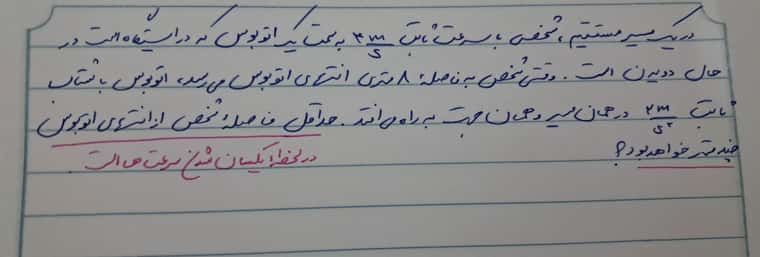 در یک مسیر مستقیم، شخصی با سرعت ثابت ۳ m/s به سمت یک اتوبوس که در ایستگاه است در
حال دویدن است. وقتی شخص به فاصلهٔ ۸ متری انتهای اتوبوس می‌رسد، اتوبوس با شتاب
ثابت ۲ m/s² در همان مسیر و همان جهت به راه می‌افتد. حداقل فاصلهٔ شخص از انتهای اتوبوس
چند متر خواهد بود؟
در لحظهٔ یکسان شدن سرعت‌ها است.